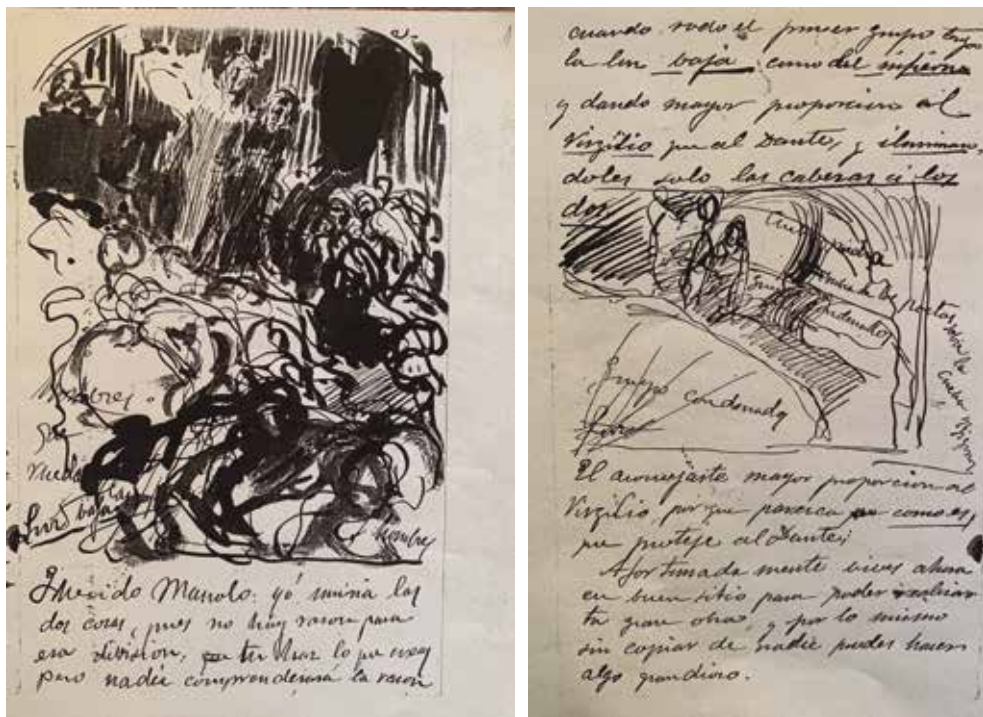 hombres
que
ruedan
Luz baja
hombres
Querido Manolo: yo uniria las
dos cosas, pues no hay razon para
esa division, tu haz lo que creas
pero nadie comprenderá la razon
cuando todo el primer grupo
la luz baja como del infierno
y dando mayor proporcion al
Virgilio que al Dante, y iluminan
doles solo las cabezas á los
dos
sombra de los poetas sobre la
Grupo condenados
El aconsejarte mayor proporcion al
Virgilio, por que parezca como es,
que proteje al Dante;
Afortunadamente vives ahora
en buen sitio para poder realizar
tu gran obra, y por lo mismo
sin copiar de nadie puedes hacer
algo grandioso.